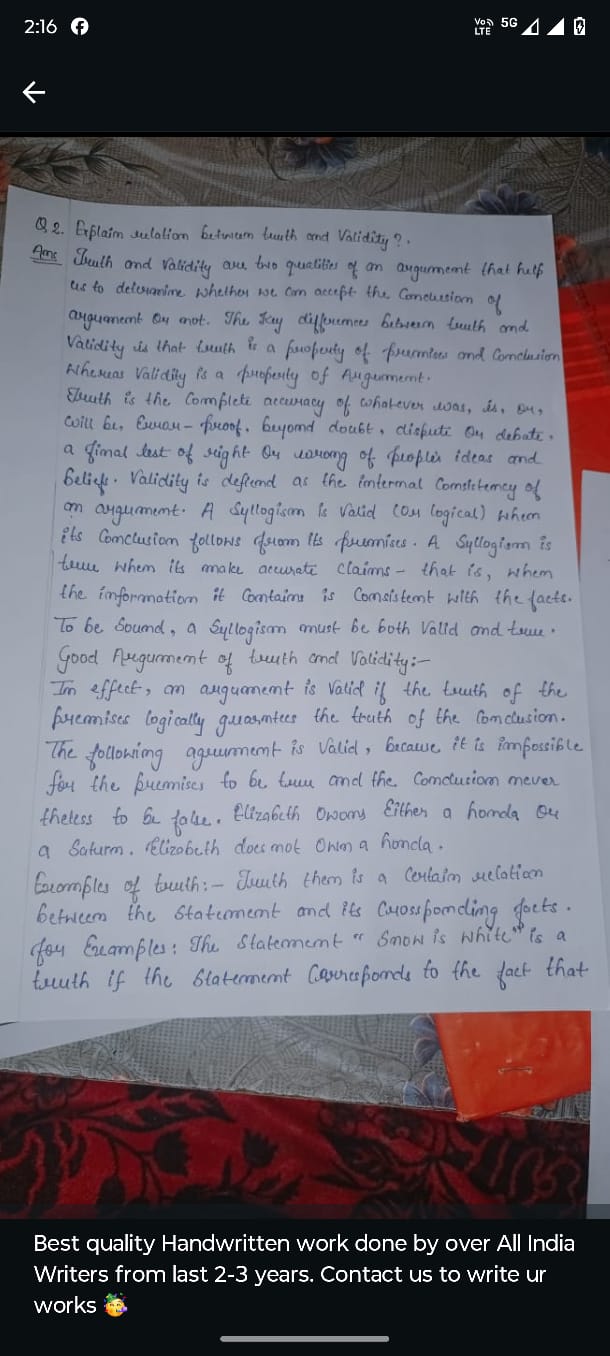 2:16
Vo))
LTE
5G
Q 2. Explain relation between truth and Validity?.
Ans Truth and Validity are two qualities of an argument that help
us to determine whether we can accept the Conclusion of
argument or not. The Key differences between truth and
Validity is that truth is a property of premises and Conclusion
Whereas Validity is a property of Argument.
Truth is the Complete accuracy of whatever was, is, or,
will be, Error-proof, beyond doubt, dispute or debate,
a final test of right or wrong of people's ideas and
beliefs. Validity is defined as the internal Consistency of
an argument. A Syllogism is Valid (or logical) when
its Conclusion follows from its premises. A Syllogism is
true when its make accurate claims - that is, when
the information it Contains is Consistent with the facts.
To be Sound, a Syllogism must be both Valid and true.
Good Argument of truth and Validity:-
In effect, an argument is Valid if the truth of the
premises logically guarntees the truth of the Conclusion.
The following agrument is Valid, because it is impossible
for the premises to be true and the Conclusion never
theless to be false. Elizabeth Owons Either a honda or
a Saturn. Elizabeth does not Own a honda.
Examples of truth:- Truth then is a Certain relation
between the Statement and its Crossponding facts.
for Examples: The Statement " Snow is white" is a
truth if the Statement Corresponds to the fact that
Best quality Handwritten work done by over All India
Writers from last 2-3 years. Contact us to write ur
works